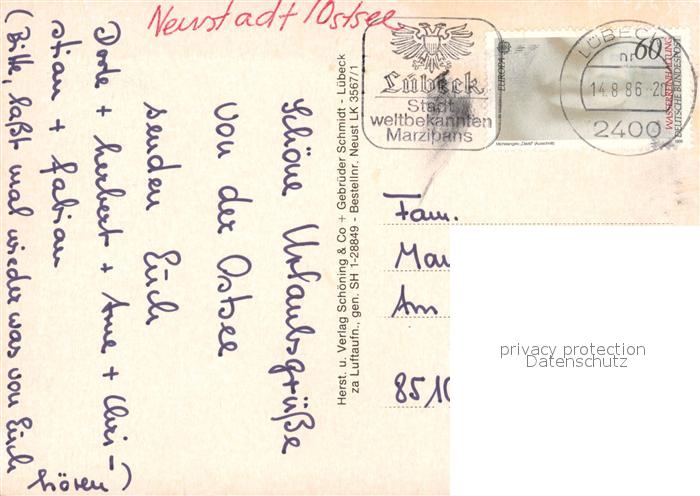 Neustadt/Ostsee
Schöne Urlaubsgrüße
von der Ostsee
senden Euch
Dorte + Herbert + Arne + Chri-
stian + Fabian
(Bitte, laßt mal wieder was von Euch
hören)
Herst. u. Verlag Schöning & Co + Gebrüder Schmidt - Lübeck
za Luftaufn., gen. SH 1-28849 - Bestellnr. Neust LK 3567/1
Lübeck
Stadt
weltbekannten
Marzipans
EUROPA
60
WASSERREINHALTUNG
DEUTSCHE BUNDESPOST
Michelangelo, „David" (Ausschnitt)
LÜBECK
14.8.86-20
2400
Fam.
Mau
Am
8510
privacy protection
Datenschutz